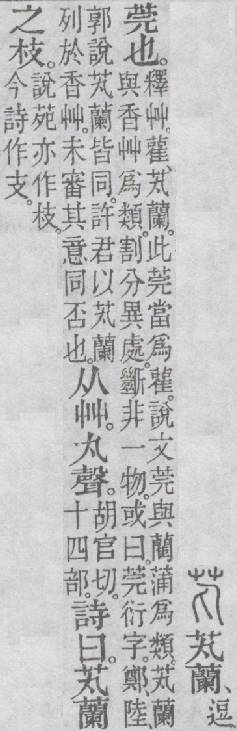 芄 芄蘭、逗
莞也。釋艸。雚、芄蘭。此莞當爲雚。說文莞與藺蒲爲類。芄蘭
與香艸爲類。割分異處。斷非一物。或曰。莞衍字。鄭、陸、
郭說芄蘭皆同。許君以芄蘭
列於香艸。未審其意同否也。从艸。丸聲。胡官切。十四部。詩曰。芄蘭
之枝。說苑亦作枝。
今詩作支。